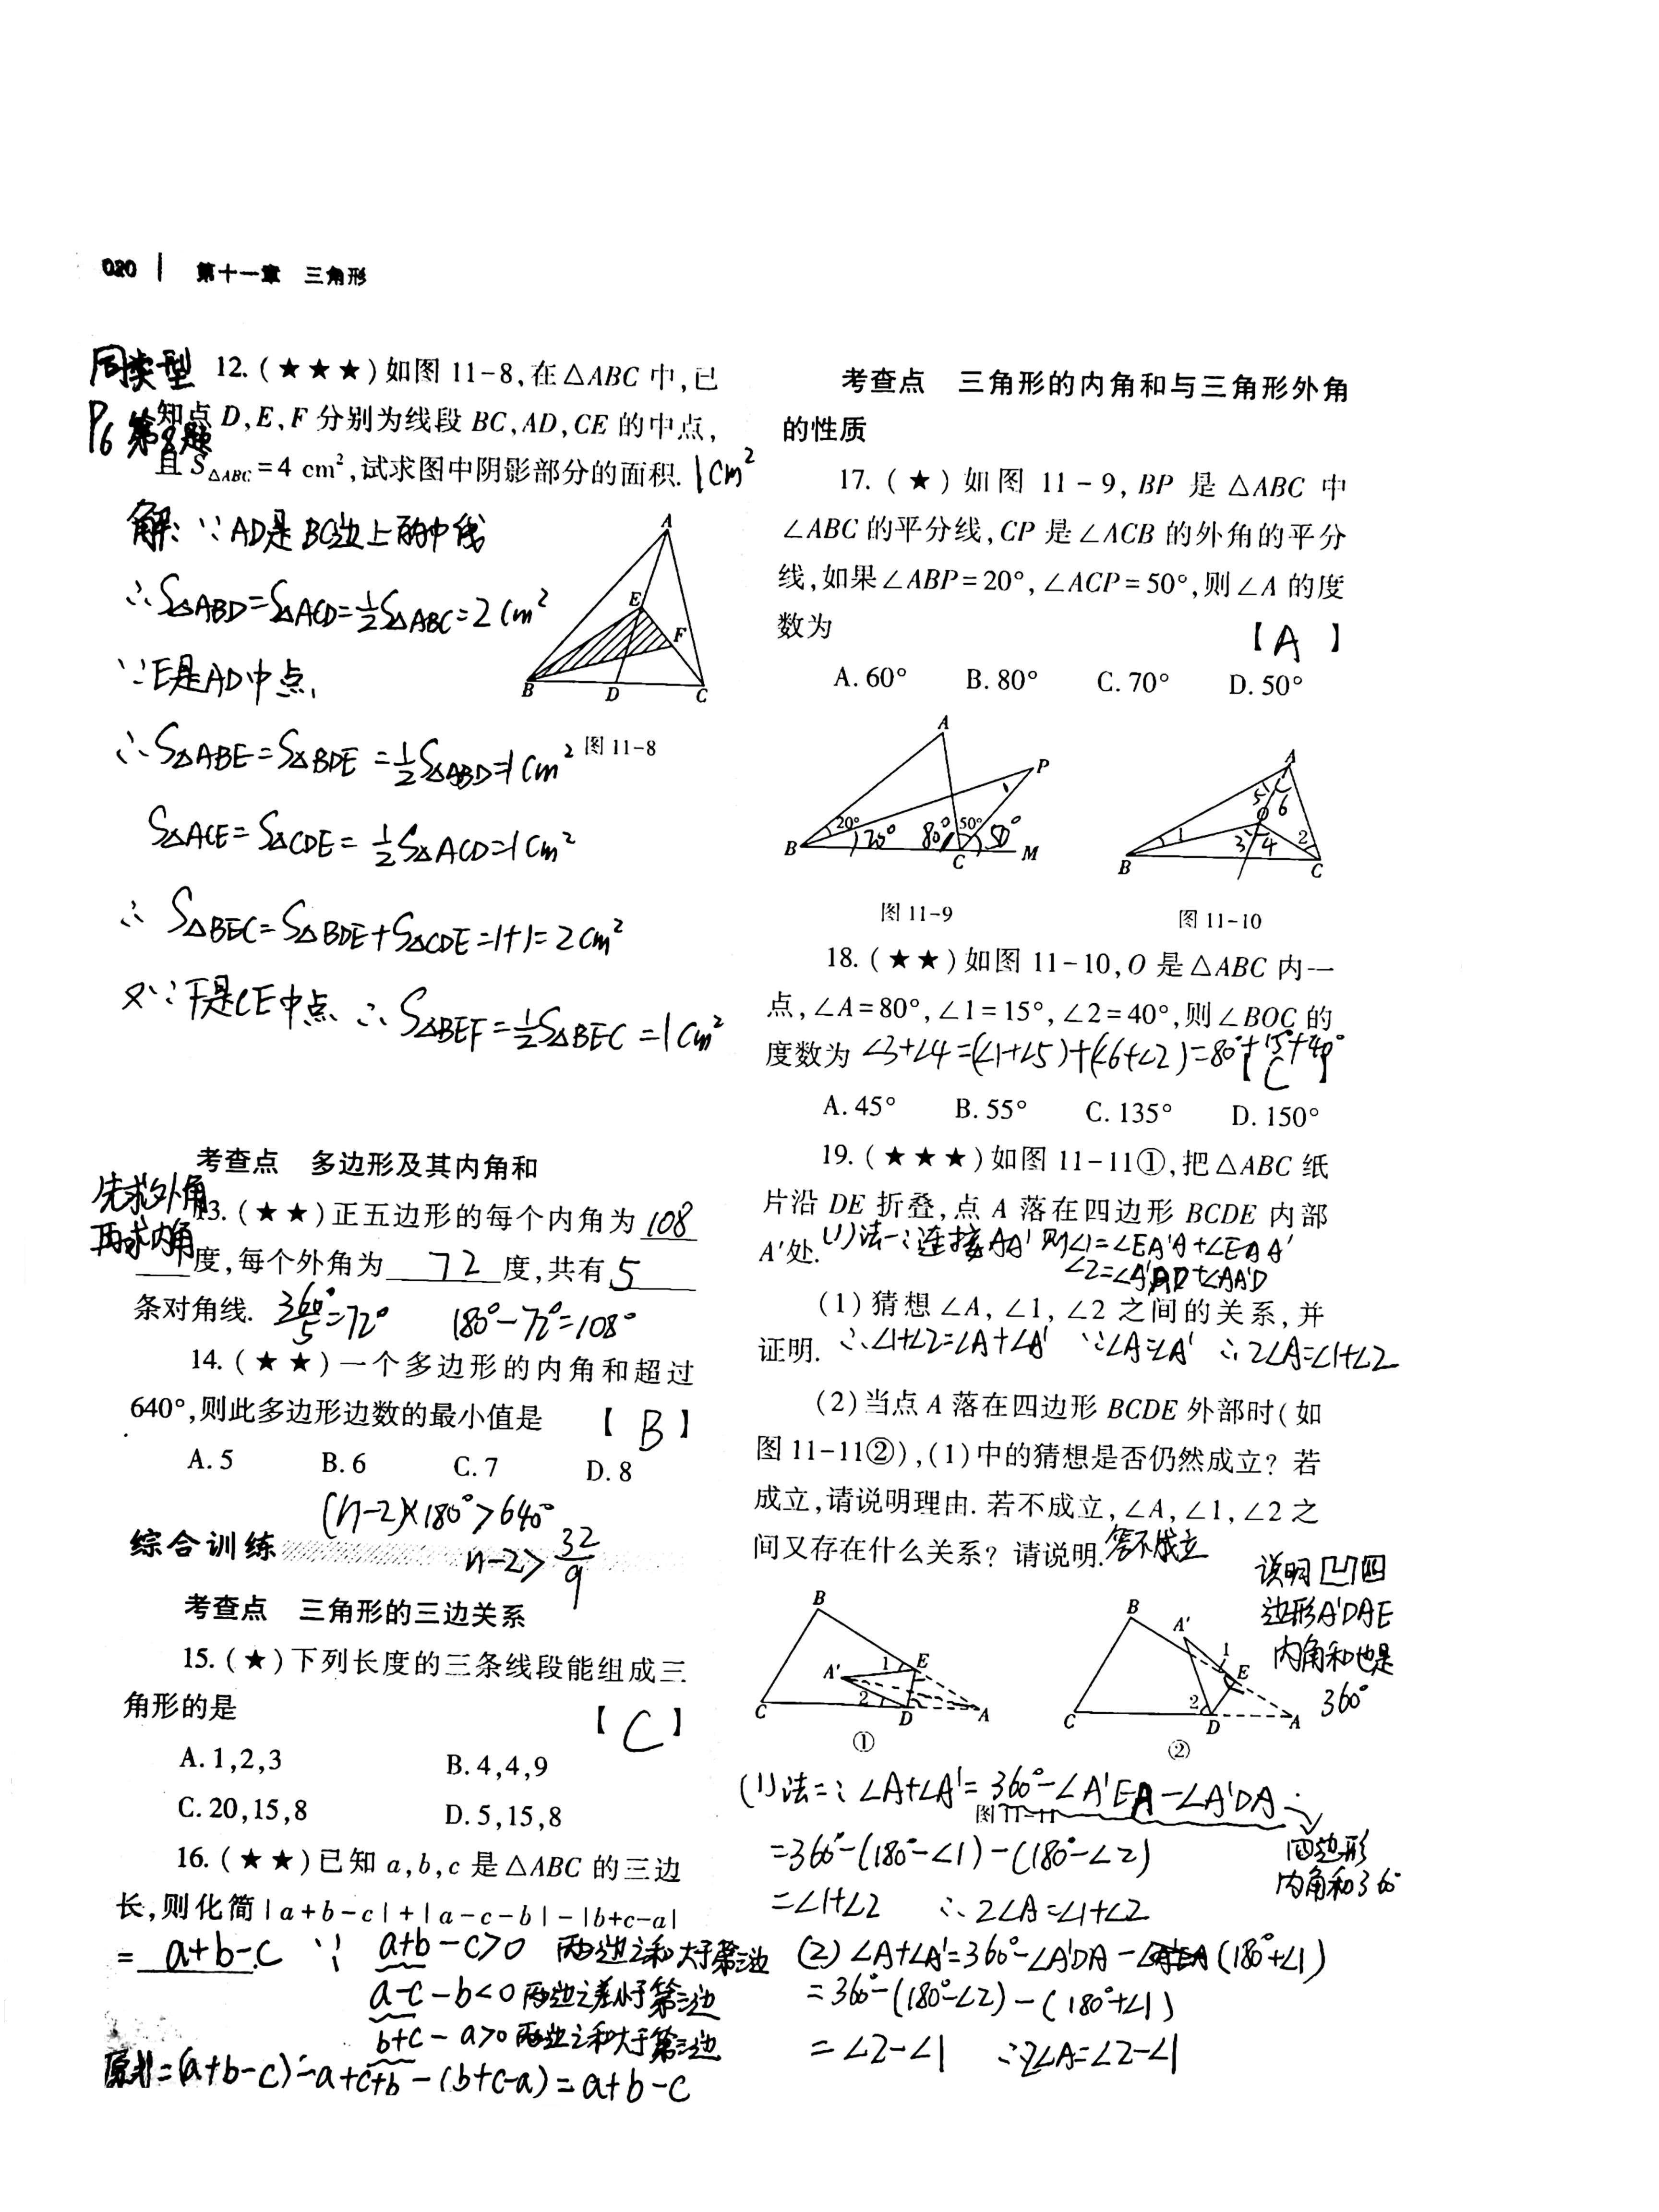 020 | 第十一章 三角形
同类型 12. (★★★)如图 11-8,在△ABC 中,已
P6 第8题 知点 D,E,F 分别为线段 BC,AD,CE 的中点,
且 S△ABC=4 cm²,试求图中阴影部分的面积. 1cm²
解: ∵AD是BC边上的中线
∴S△ABD=S△ACD=1/2S△ABC=2cm²
∵E是AD中点,
∴S△ABE=S△BDE=1/2S△ABD=1cm²
S△ACE=S△CDE=1/2S△ACD=1cm²
∴S△BEC=S△BDE+S△CDE=1+1=2cm²
又∵F是CE中点 ∴S△BEF=1/2S△BEC=1cm²
A
E
F
B D C
图 11-8
考查点 多边形及其内角和
先求外角
再求内角
13. (★★)正五边形的每个内角为 108
度,每个外角为 72 度,共有 5
条对角线. 360°/5=72° 180°-72°=108°
14. (★★)一个多边形的内角和超过
640°,则此多边形边数的最小值是 【 B 】
A. 5 B. 6 C. 7 D. 8
(n-2)×180°>640°
n-2>32/9
综合训练
考查点 三角形的三边关系
15. (★)下列长度的三条线段能组成三
角形的是 【 C 】
A. 1,2,3 B. 4,4,9
C. 20,15,8 D. 5,15,8
16. (★★)已知 a,b,c 是△ABC 的三边
长,则化简|a+b-c|+|a-c-b|-|b+c-a|
= a+b-c . ∵ a+b-c>0 两边之和大于第三边
a-c-b<0 两边之差小于第三边
b+c-a>0 两边之和大于第三边
原式=(a+b-c)-a+c+b-(b+c-a)=a+b-c
考查点 三角形的内角和与三角形外角
的性质
17. (★)如图 11-9,BP 是△ABC 中
∠ABC 的平分线,CP 是∠ACB 的外角的平分
线,如果∠ABP=20°,∠ACP=50°,则∠A 的度
数为 【 A 】
A. 60° B. 80° C. 70° D. 50°
A
P
20° 20° 80° 50° 50°
B C M
图 11-9
A
5 6
O
1 3 4 2
B C
图 11-10
18. (★★)如图 11-10,O 是△ABC 内一
点,∠A=80°,∠1=15°,∠2=40°,则∠BOC 的
度数为 ∠3+∠4=(∠1+∠5)+(∠6+∠2)=80°+15°+40°
【 C 】
A. 45° B. 55° C. 135° D. 150°
19. (★★★)如图 11-11①,把△ABC 纸
片沿 DE 折叠,点 A 落在四边形 BCDE 内部
A′处. (1)法一:连接AA′ 则∠1=∠EA′A+∠EAA′
∠2=∠A′AD+∠AA′D
(1)猜想∠A,∠1,∠2 之间的关系,并
证明. ∴∠1+∠2=∠A+∠A′ ∵∠A=∠A′ ∴2∠A=∠1+∠2
(2)当点 A 落在四边形 BCDE 外部时(如
图 11-11②),(1)中的猜想是否仍然成立? 若
成立,请说明理由. 若不成立,∠A,∠1,∠2 之
间又存在什么关系? 请说明. 答不成立
说明凹四
边形A′DAE
内角和也是
360°
B
A′ 1 E
2
C D A
①
B
A′
1
E
2
C D A
②
图 11-11
(1)法二: ∠A+∠A′=360°-∠A′EA-∠A′DA
四边形
内角和360°
=360°-(180°-∠1)-(180°-∠2)
=∠1+∠2 ∴2∠A=∠1+∠2
(2)∠A+∠A′=360°-∠A′DA-(180°+∠1)
=360°-(180°-∠2)-(180°+∠1)
=∠2-∠1 ∴2∠A=∠2-∠1